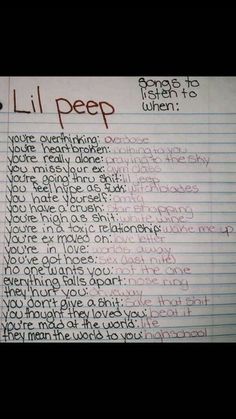 songs to
listen to
when:
Lil peep
you're overthinking: overdose
you're heartbroken: nothing to you
you're really alone: praying to the sky
you miss your ex: gym class
you're going thru shit: lil jeep
you feel hype as fuck: witchblades
you hate yourself: omfg
you have a crush: star shopping
you're high as shit: white wine
you're in a toxic relationship: wake me up
you're ex moved on: love letter
you're in love: worlds away
you've got hoes: sex (last nite)
no one wants you: not the one
everything falls apart: nose ring
they hurt you: driveway
you don't give a shit: save that shit
you thought they loved you: beat it
you're mad at the world: life
they mean the world to you: highschool